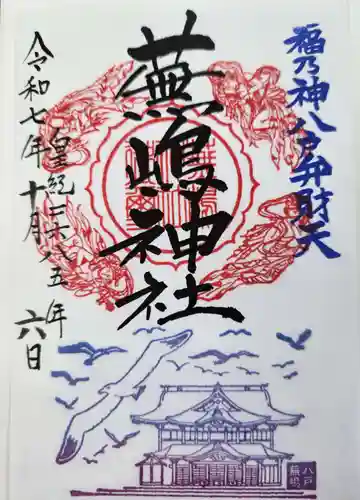 福乃神八戸弁財天
蕪嶋神社
皇紀二千六百八五年
令和七年十月六日
八戸
蕪嶋